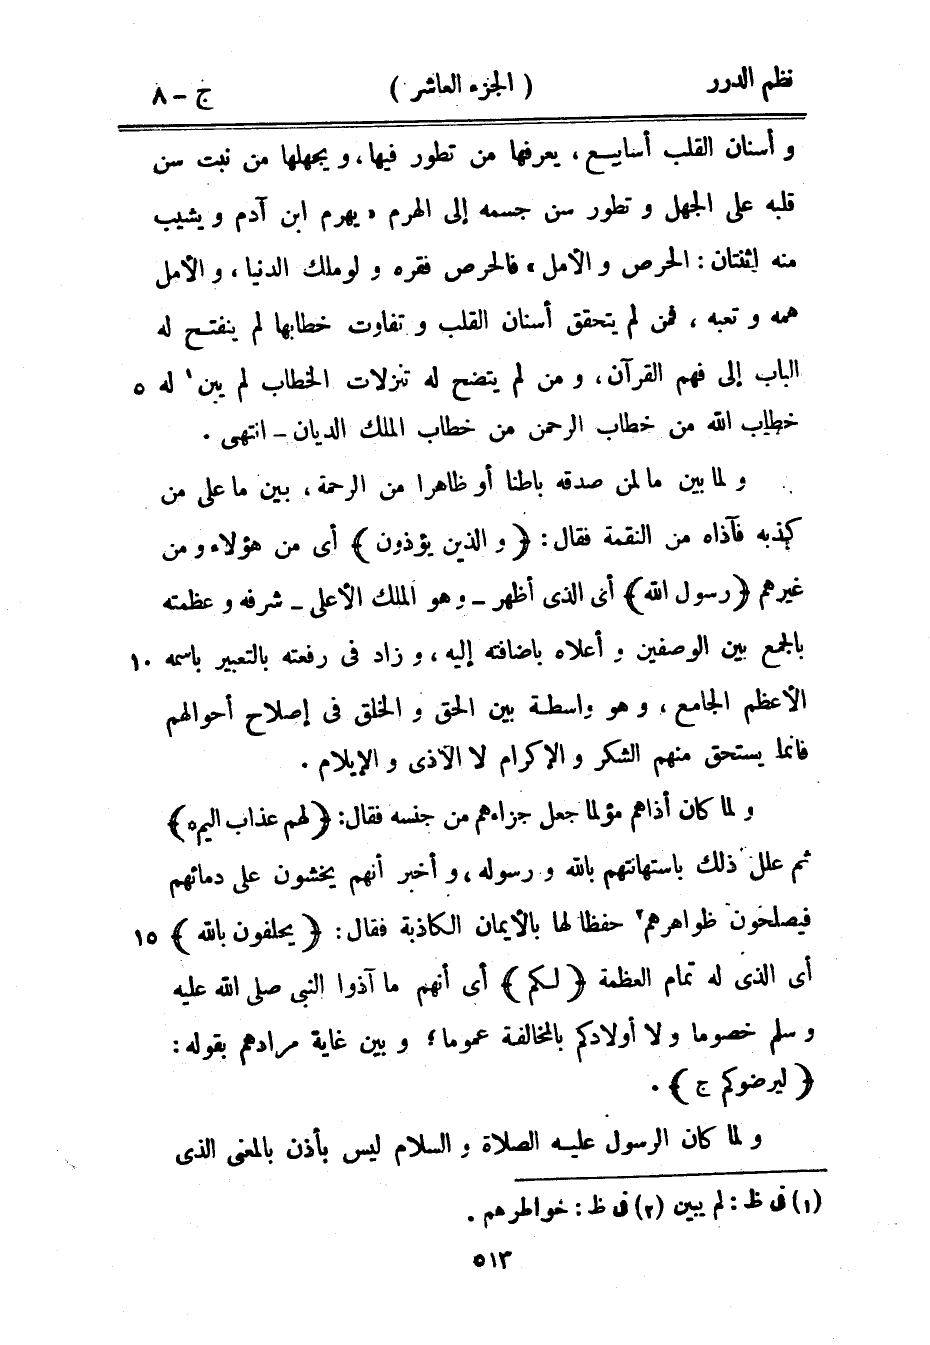 نظم الدرر ( الجزء العاشر ) ج - ٨
و أسنان القلب أسابيع ، يعرفها من تطور فيها ، و يجهلها من نبت سن
قلبه على الجهل و تطور سن جسمه إلى الهرم « يهرم ابن آدم و يشيب
منه اثنتان : الحرص و الأمل » فالحرص فقره و لو ملك الدنيا ، و الأمل
همه و تعبه ، فمن لم يتحقق أسنان القلب و تفاوت خطابها لم ينفتح له
الباب إلى فهم القرآن ، و من لم يتضح له تنزلات الخطاب لم يبن ١ له ٥
خطاب الله من خطاب الرحمن من خطاب الملك الديان - انتهى .
و لما بين ما لمن صدقه باطنا أو ظاهرا من الرحمة ، بين ما على من
كذبه فآذاه من النقمة فقال : ﴿ و الذين يؤذون ﴾ أى من هؤلاء و من
غيرهم ﴿ رسول الله ﴾ أى الذى أظهر - و هو الملك الأعلى - شرفه و عظمته
بالجمع بين الوصفين و أعلاه باضافته إليه ، و زاد فى رفعته بالتعبير باسمه ١٠
الأعظم الجامع ، و هو واسطة بين الحق و الخلق فى إصلاح أحوالهم
فانما يستحق منهم الشكر و الإكرام لا الأذى و الإيلام .
و لما كان أذاهم مؤلما جعل جزاءهم من جنسه فقال : ﴿ لهم عذاب اليم ه ﴾
ثم علل ذلك باستهانتهم بالله و رسوله ، و أخبر أنهم يخشون على دمائهم
فيصلحون ظواهرهم ٢ حفظا لها بالأيمان الكاذبة فقال : ﴿ يحلفون بالله ﴾ ١٥
أى الذى له تمام العظمة ﴿ لكم ﴾ أى أنهم ما آذوا النبى صلى الله عليه
و سلم خصوما و لا أولادكم بالمخالفة عموما ؛ و بين غاية مرادهم بقوله :
﴿ ليرضوكم ج ﴾ .
و لما كان الرسول عليه الصلاة و السلام ليس بأذن بالمعنى الذى
(١) فى ظ : لم يبين (٢) فى ظ : خواطرهم .
٥١٣